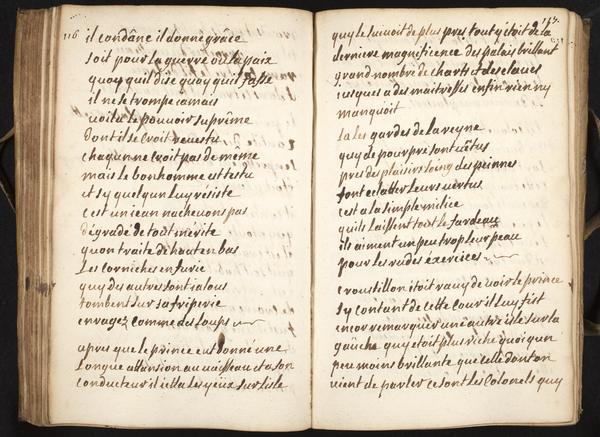 116
il condâne il donne grace
soit pour la guerre ou la paix
quoy quil dise quoy quil fasse
il ne le trompe iamais
voila le pouvoir suprême
dont il se croit revestu
chaqunne croit pas de même
mais le bonhomme est testu
et sy quelqun luy résiste
cest un iean nachevons pas
dégradé de tout mérite
quon traite de haut en bas
Les corniches en furie
quy des autres sont ialous
tombent sur sa friperie
enragez comme des loups
apres que le prince eut donné une
Longue attansion au vaisseau et a son
conducteur il ietta les yeux sur lisle
quy le suivoit de plus pres tout y étoit de la
derniere magnificence des palais brillant
grand nombre de chars et desclaves
iusques a des maitresses enfin rien ny
manquoit
la les gardes de la reyne
quy de pourpre sont vêtus
pres des plaisirs loing des peinnes
font eclatter leurs vertus
cest a la simple milice
quils laissent tout le fardeau
ils aiment un peu trop leur peau
pour les rudes exercices
croustillon étoit ravy de voir le prince
sy contant de cette cour il luy fist
encor remarquer une autre isle sur la
gauche quy etoit plus riche quoi qun
peu moins brillante que celle dont on
vient de parler ce sont les Colonels quy